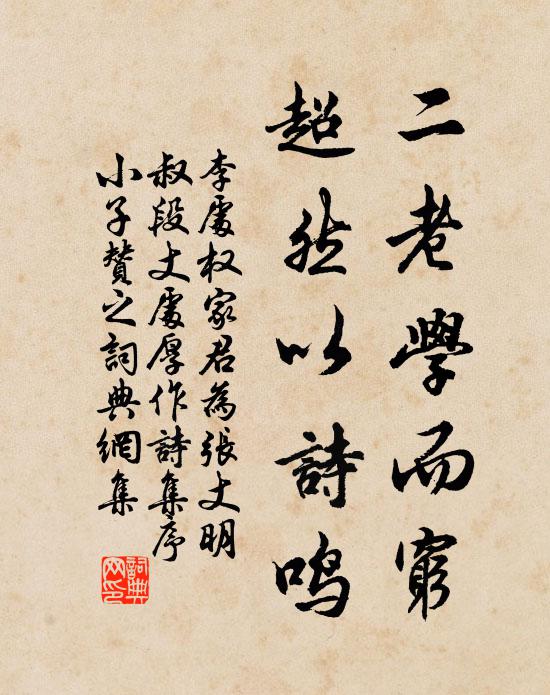 二老學而窮
超然以詩鳴
李處权家君為張丈明
叔段丈處厚作詩集序
小子贊之詞典網集
詞典网印